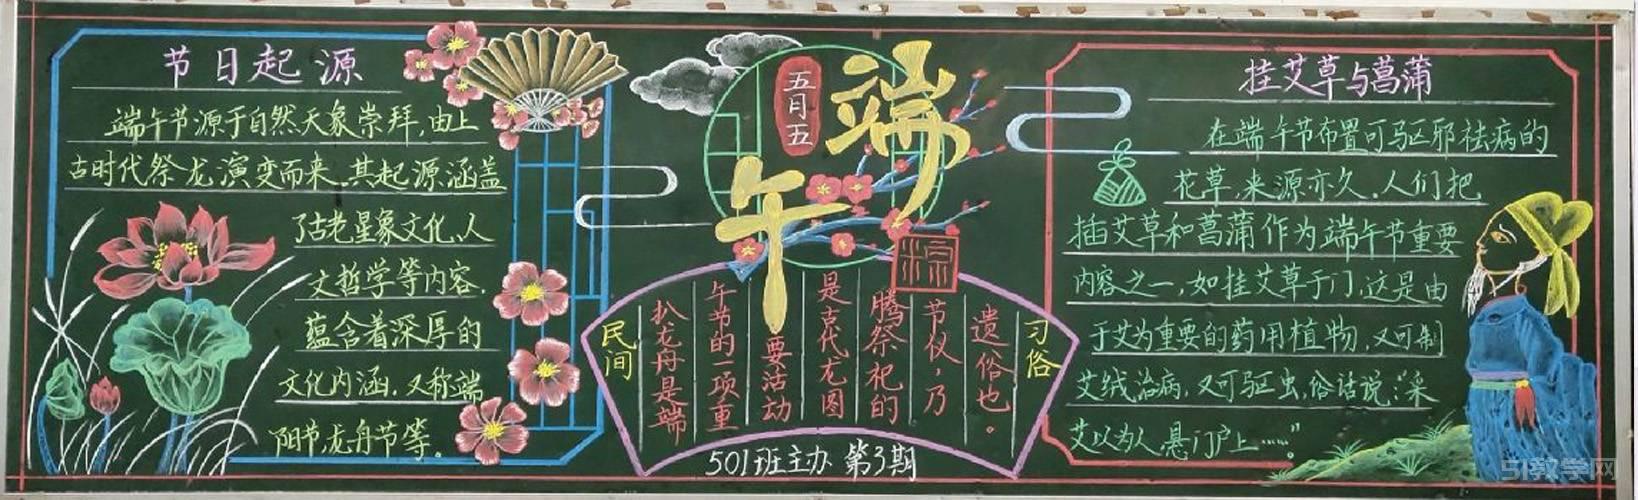 节日起源
端午节源于自然天象崇拜,由上
古时代祭龙演变而来,其起源涵盖
了古老星象文化、人
文哲学等内容,
蕴含着深厚的
文化内涵,又称端
阳节,龙舟节等。
五月五
端午
粽
民间
扒龙舟是端
午节的一项重
要活动
是古代龙图
腾祭祀的
节仪,乃
遗俗也。
习俗
501班主办 第3期
挂艾草与菖蒲
在端午节布置可驱邪祛病的
花草,来源亦久,人们把
插艾草和菖蒲作为端午节重要
内容之一,如挂艾草于门,这是由
于艾为重要的药用植物,又可制
艾绒治病,又可驱虫,俗话说:“采
艾以为人,悬门户上……”。
51教学网